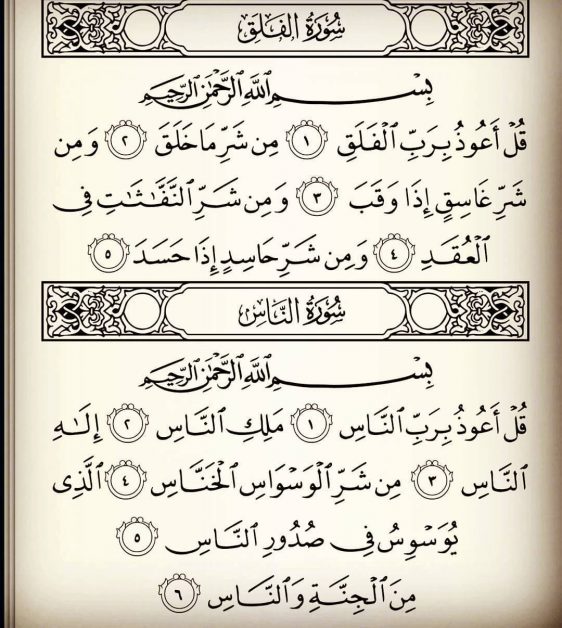 سُورَةُ الفَلَقِ
بِسْمِ اللَّهِ الرَّحْمَٰنِ الرَّحِيمِ
قُلْ أَعُوذُ بِرَبِّ ٱلْفَلَقِ ١ مِن شَرِّ مَا خَلَقَ ٢ وَمِن
شَرِّ غَاسِقٍ إِذَا وَقَبَ ٣ وَمِن شَرِّ ٱلنَّفَّٰثَٰتِ فِى
ٱلْعُقَدِ ٤ وَمِن شَرِّ حَاسِدٍ إِذَا حَسَدَ ٥
سُورَةُ النَّاسِ
بِسْمِ اللَّهِ الرَّحْمَٰنِ الرَّحِيمِ
قُلْ أَعُوذُ بِرَبِّ ٱلنَّاسِ ١ مَلِكِ ٱلنَّاسِ ٢ إِلَٰهِ
ٱلنَّاسِ ٣ مِن شَرِّ ٱلْوَسْوَاسِ ٱلْخَنَّاسِ ٤ ٱلَّذِى
يُوَسْوِسُ فِى صُدُورِ ٱلنَّاسِ ٥
مِنَ ٱلْجِنَّةِ وَٱلنَّاسِ ٦